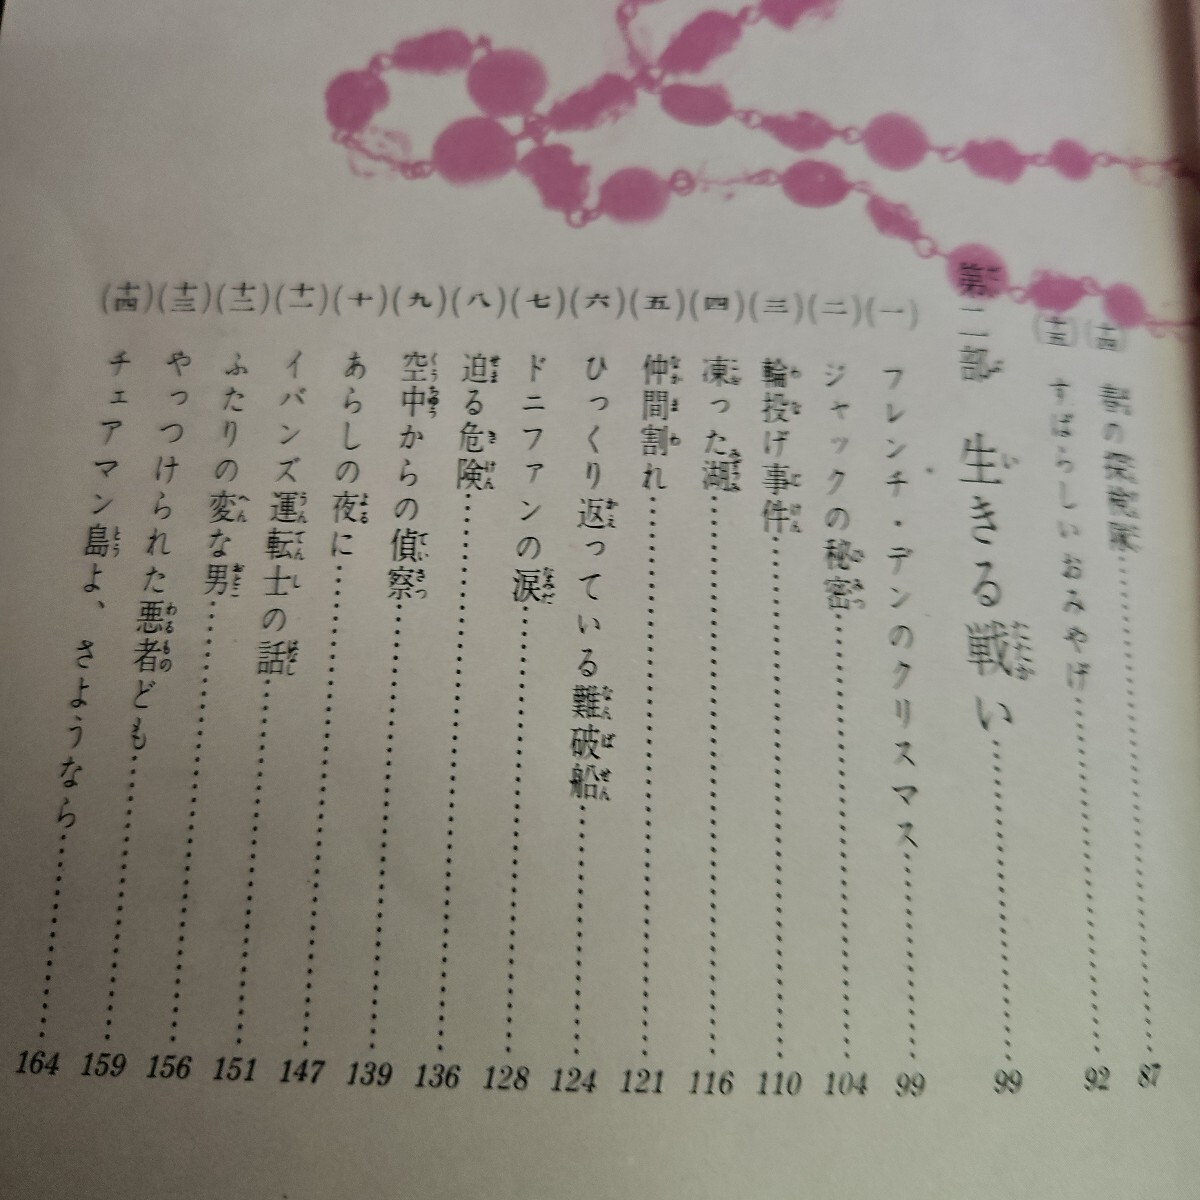 (十四) 春の探検隊……87
(十五) すばらしいおみやげ……92
第二部 生きる戦い……99
(一) フレンチ・デンのクリスマス……99
(二) ジャックの秘密……104
(三) 輪投げ事件……110
(四) 凍った湖……116
(五) 仲間割れ……121
(六) ひっくり返っている難破船……124
(七) ドニファンの涙……128
(八) 迫る危険……136
(九) 空中からの偵察……139
(十) あらしの夜に……147
(十一) イバンズ運転士の話……151
(十二) ふたりの変な男……156
(十三) やっつけられた悪者ども……159
(十四) チェアマン島よ、さようなら……164